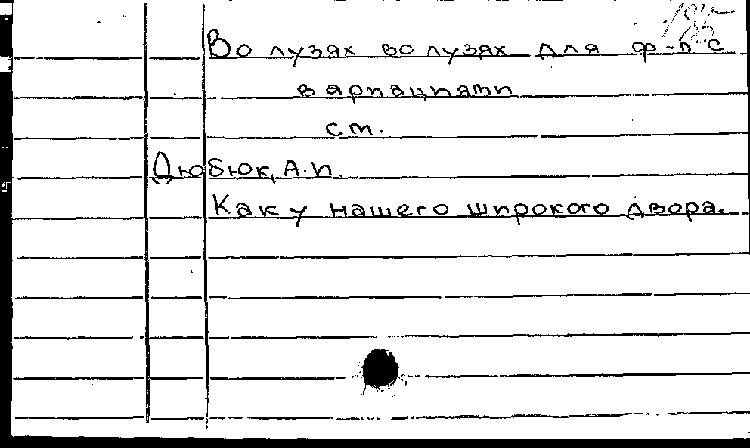 Во лузях во лузях для ф-п с
вариациями
см.
Дюбюк, А.И.
Как у нашего широкого двора.